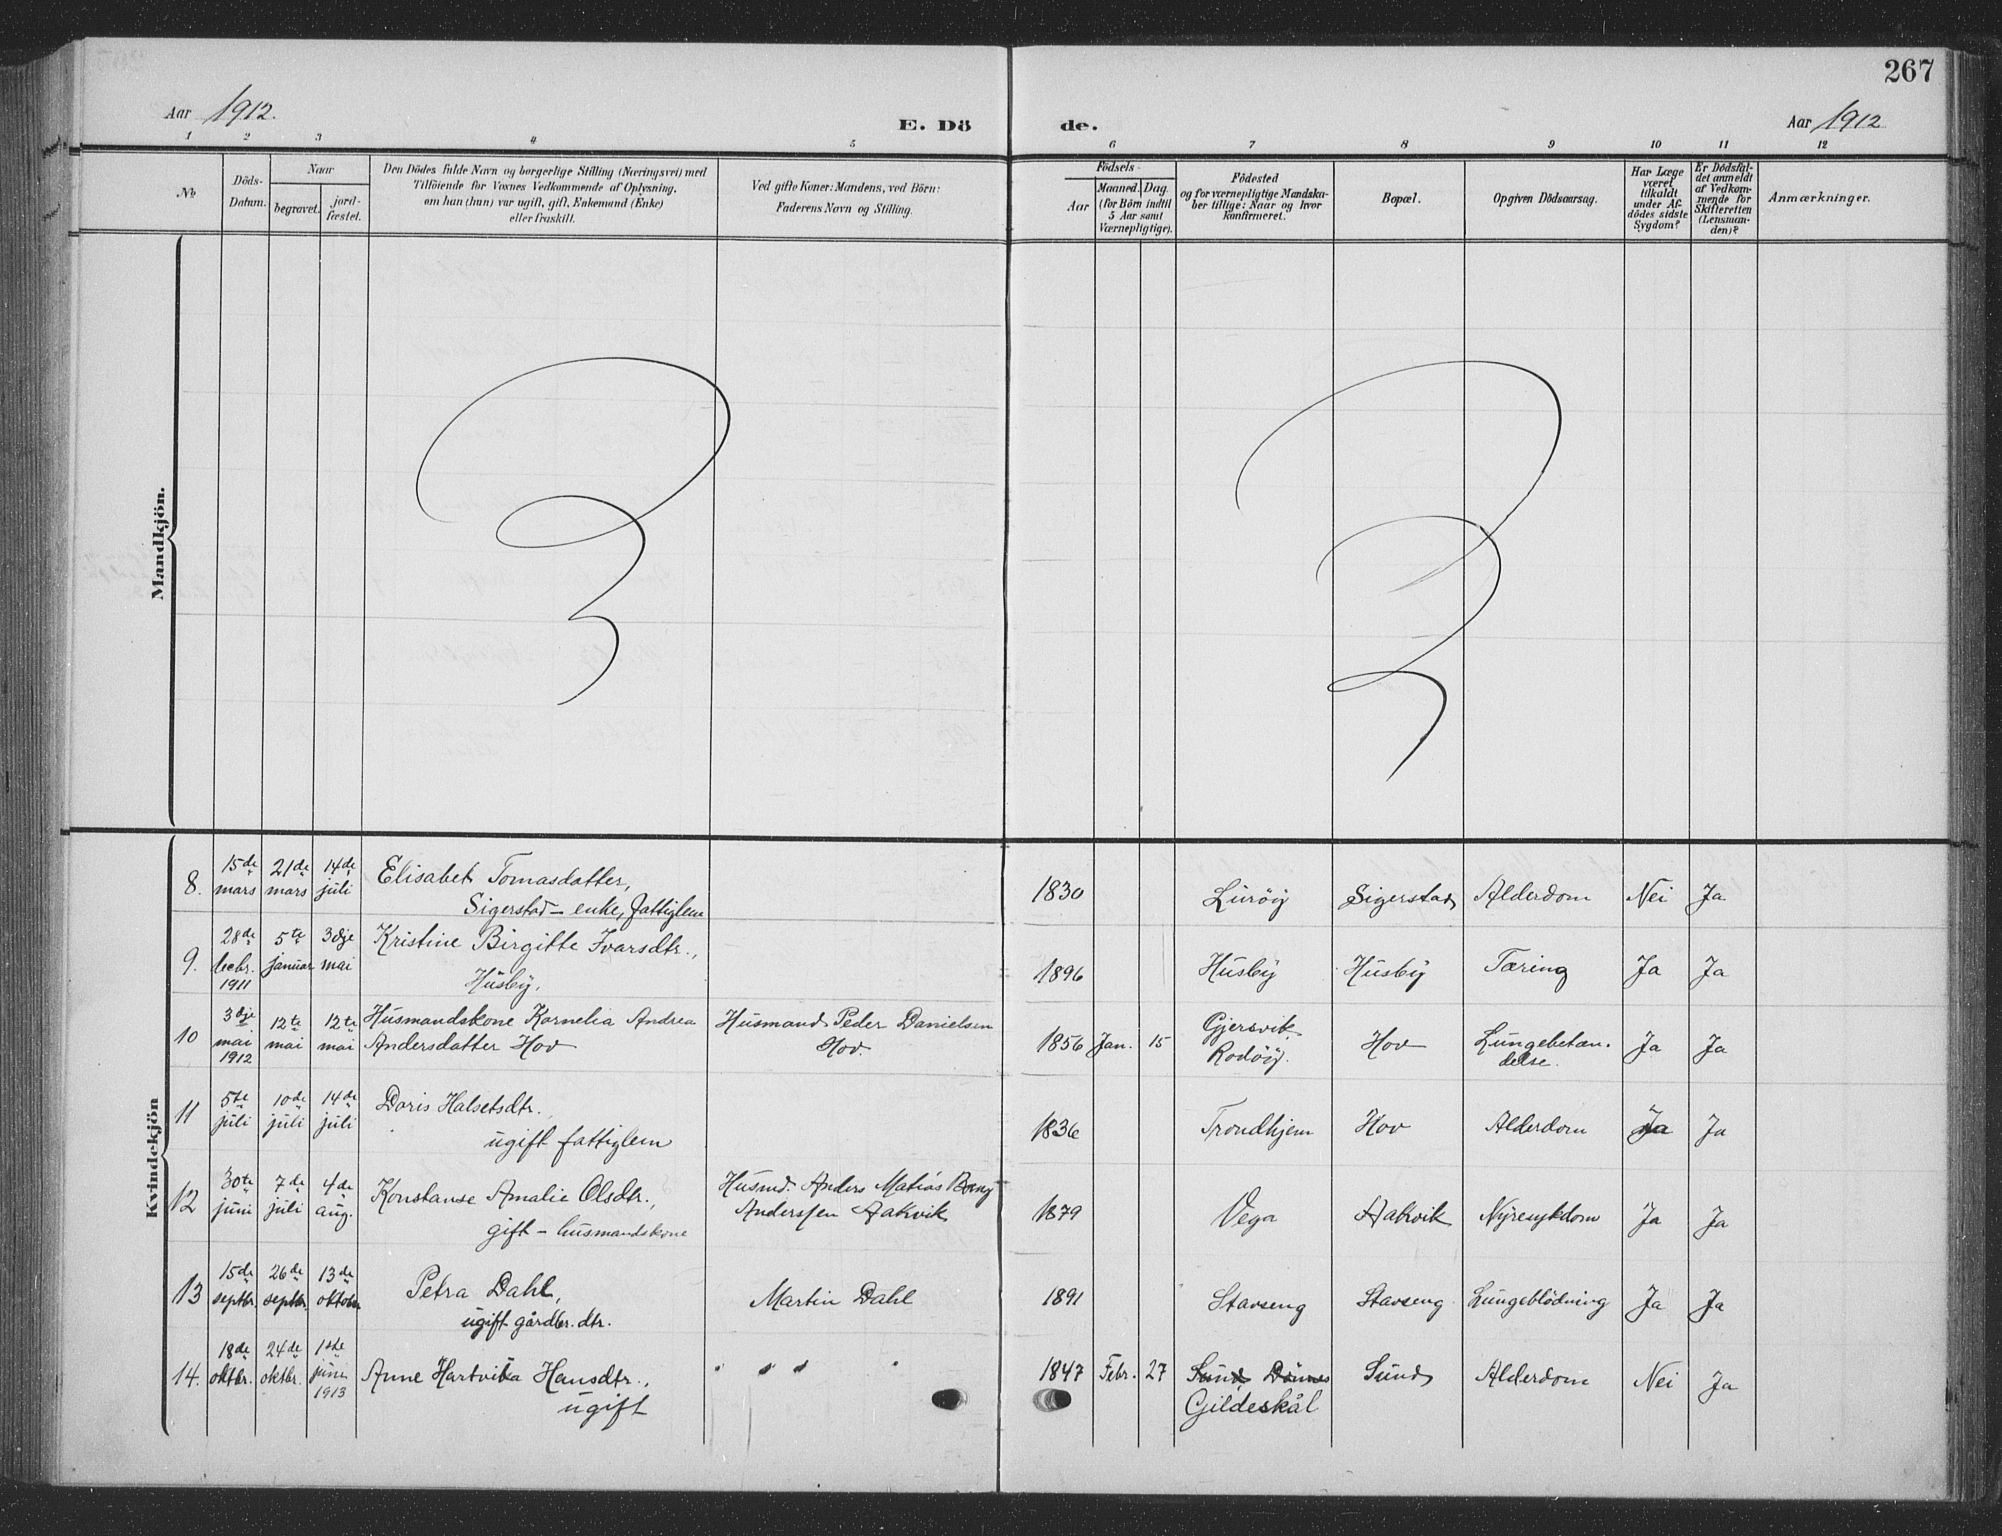 267
Aar 1912.
E. Dö de.
Aar 1912
1 2 3 4 5 6 7 8 9 10 11 12
No
Döds-
Datum.
Naar
begravet.
jord-
fæstet.
Den Dödes fulde Navn og borgerlige Stilling (Næringsvei) med
Tilföiende for Voxnes Vedkommende af Oplysning,
om han (hun) var ugift, gift, Enkemand (Enke)
eller fraskilt.
Ved gifte Koner: Mandens, ved Börn:
Faderens Navn og Stilling.
Födsels-
Aar
Maaned. Dag.
(for Börn indtil
5 Aar samt
Værnepligtige).
Födested
og for værnepligtige Mandska-
ber tillige: Naar og hvor
konfirmeret.
Bopæl.
Opgiven Dödsaarsag.
Har Læge
været
tilkaldt
under Af-
dödes sidste
Sygdom?
Er Dödsfal-
det anmeldt
af Vedkom-
mende for
Skifteretten
(Lensman-
den)?
Anmærkninger.
Mandkjön.
Kvindekjön
8. 15de mars 21de mars 14de juli Elisabet Tomasdatter,
Sigerstad – enke, fattiglem
1830 Luröy Sigerstad Alderdom Nei Ja
9. 28de decbr. 1911 5te januar 3dje mai Kristine Birgitte Ivarsdtr.,
Husby.
1896 Husby Husby Tæring Ja Ja
10 3dje mai 1912 12te mai 12te mai Husmandskone Kornelia Andrea
Andersdatter Hov
Husmand Peder Danielsen
Hov.
1856 Jan. 15 Gjersvik
Rodöy. Hov Lungebetæn-
delse. Ja Ja
11 5te juli 10de juli 14de juli Doris Halsetsdtr.
ugift fattiglem
1836 Trondhjem Hov Alderdom Ja Ja
12 30te juni 7de juli 4de aug. Konstanse Amalie Olsdtr.,
gift – husmandskone
Husmd. Anders Matias Bang
Anderssen Aakvik
1879 Vega Aakvik Nyresykdom Ja Ja
13 15de septbr. 26de septbr. 13de oktober Petra Dahl,
ugift gårdbr. dtr.
Martin Dahl
1891 Stavseng Stavseng Lungeblödning Ja Ja
14. 18de oktbr. 24de oktbr. 1ste juni 1913 Anne Hartvika Hansdtr.,
ugift
1847 Febr. 27 Sund, Dönnes
Gildeskål Sund Alderdom Nei Ja